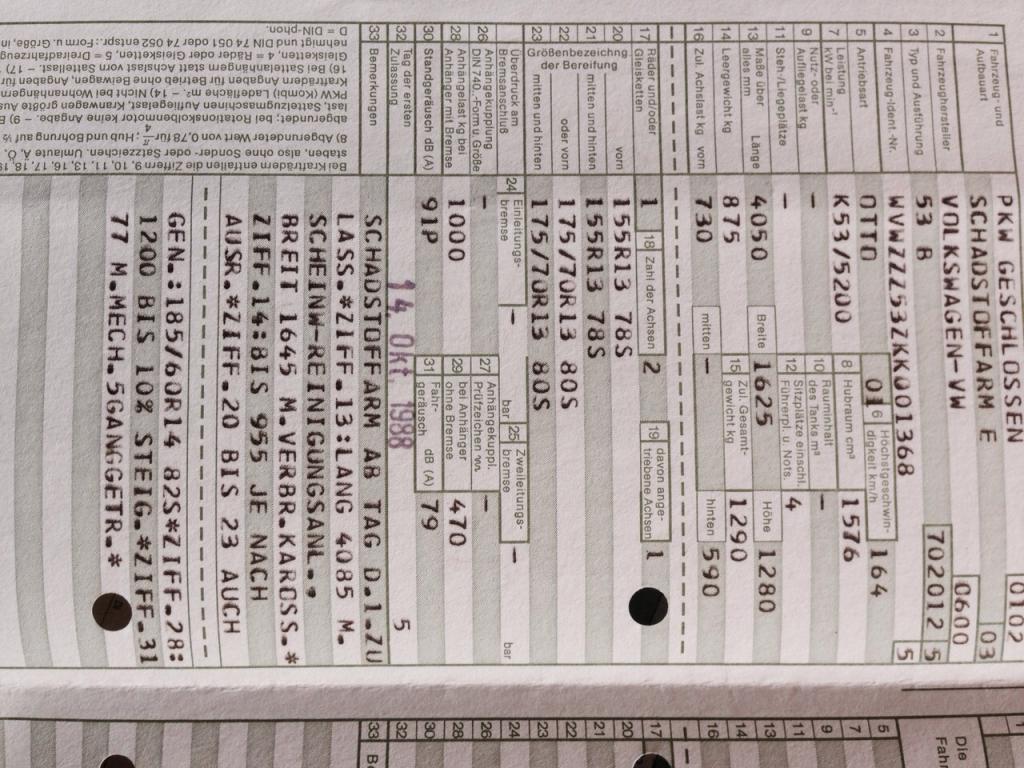 1 Fahrzeug- und Aufbauart PKW GESCHLOSSEN 0102
SCHADSTOFFARM E 03
2 Fahrzeughersteller VOLKSWAGEN-VW 0600
3 Typ und Ausführung 53 B 702012 5
4 Fahrzeug-Ident.-Nr. WVWZZZ53ZKK001368 5
5 Antriebsart OTTO 01 6 Höchstgeschwindigkeit km/h 164
7 Leistung kW bei min⁻¹ K53/5200 8 Hubraum cm³ 1576
9 Nutz- oder Aufliegelast kg – 10 Rauminhalt des Tanks m³ –
11 Steh-/Liegeplätze – 12 Sitzplätze einschl. Führerpl. u. Nots. 4
13 Maße über alles mm Länge 4050 Breite 1625 Höhe 1280
14 Leergewicht kg 875 15 Zul. Gesamtgewicht kg 1290
16 Zul. Achslast kg vorn 730 mitten – hinten 590
17 Räder und/oder Gleisketten 1 18 Zahl der Achsen 2 19 davon angetriebene Achsen 1
Größenbezeichng. der Bereifung
20 vorn 155R13 78S
21 mitten und hinten 155R13 78S
22 oder vorn 175/70R13 80S
23 mitten und hinten 175/70R13 80S
Überdruck am Bremsanschluß 24 Einleitungsbremse – bar 25 Zweileitungsbremse – bar
26 Anhängekupplung DIN 740.. -Form u. Größe – 27 Anhängekuppl. Prüfzeichen –
28 Anhängelast kg bei Anhänger mit Bremse 1000 29 bei Anhänger ohne Bremse 470
30 Standgeräusch dB (A) 91P 31 Fahrgeräusch dB (A) 79
32 Tag der ersten Zulassung 14. Okt. 1988 5
33 Bemerkungen SCHADSTOFFARM AB TAG D.1.ZU
LASS.*ZIFF.13:LANG 4085 M.
SCHEINW-REINIGUNGSANL.,
BREIT 1645 M.VERBR.KAROSS.*
ZIFF.14:BIS 955 JE NACH
AUSR.*ZIFF.20 BIS 23 AUCH
GEN.:185/60R14 82S*ZIFF.28:
1200 BIS 10% STEIG.*ZIFF.31
77 M.MECH.5GANGGETR.*
Bei Krafträdern entfallen die Ziffern 9, 10, 11, 13, 16, 17, 18, 19
staben, also ohne Sonder- oder Satzzeichen. Umlaute Ä, Ö,
8) Abgerundeter Wert von 0,78 für π/4; Hub und Bohrung auf ½
abgerundet; bei Rotationskolbenmotor keine Angabe. – 9) B
last, Sattelzugmaschinen Aufliegelast, Kranwagen größte Aus
PKW (Kombi) Ladefläche m². – 14) Nicht bei Wohnanhängern
Krafträdern Angaben für Betrieb ohne Beiwagen, Angaben für
16) Bei Sattelanhängern statt Achslast vorn Sattellast. – 17)
Gleisketten, 4 = Räder oder Gleisketten, 5 = Dreiradfahrzeug
nehmigt und DIN 74 051 oder 74 052 entspr.: Form u. Größe, in
D = DIN-phon.
Die
Fahr
5
7
9
11
13
14
16
17
20
21
22
23
24
26
28
30
32
33 Be